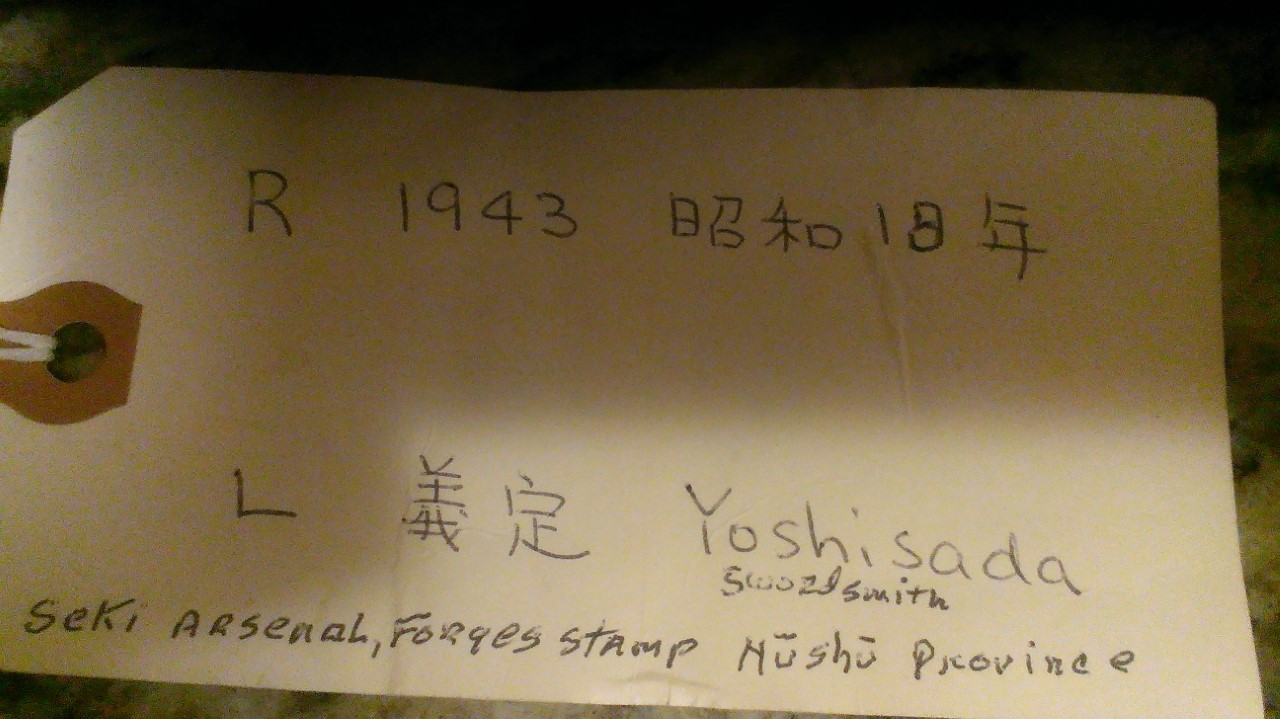 R 1943 昭和18年
L 義定 Yoshisada
Swordsmith
Seki Arsenal, Forges stamp Nūshū Province